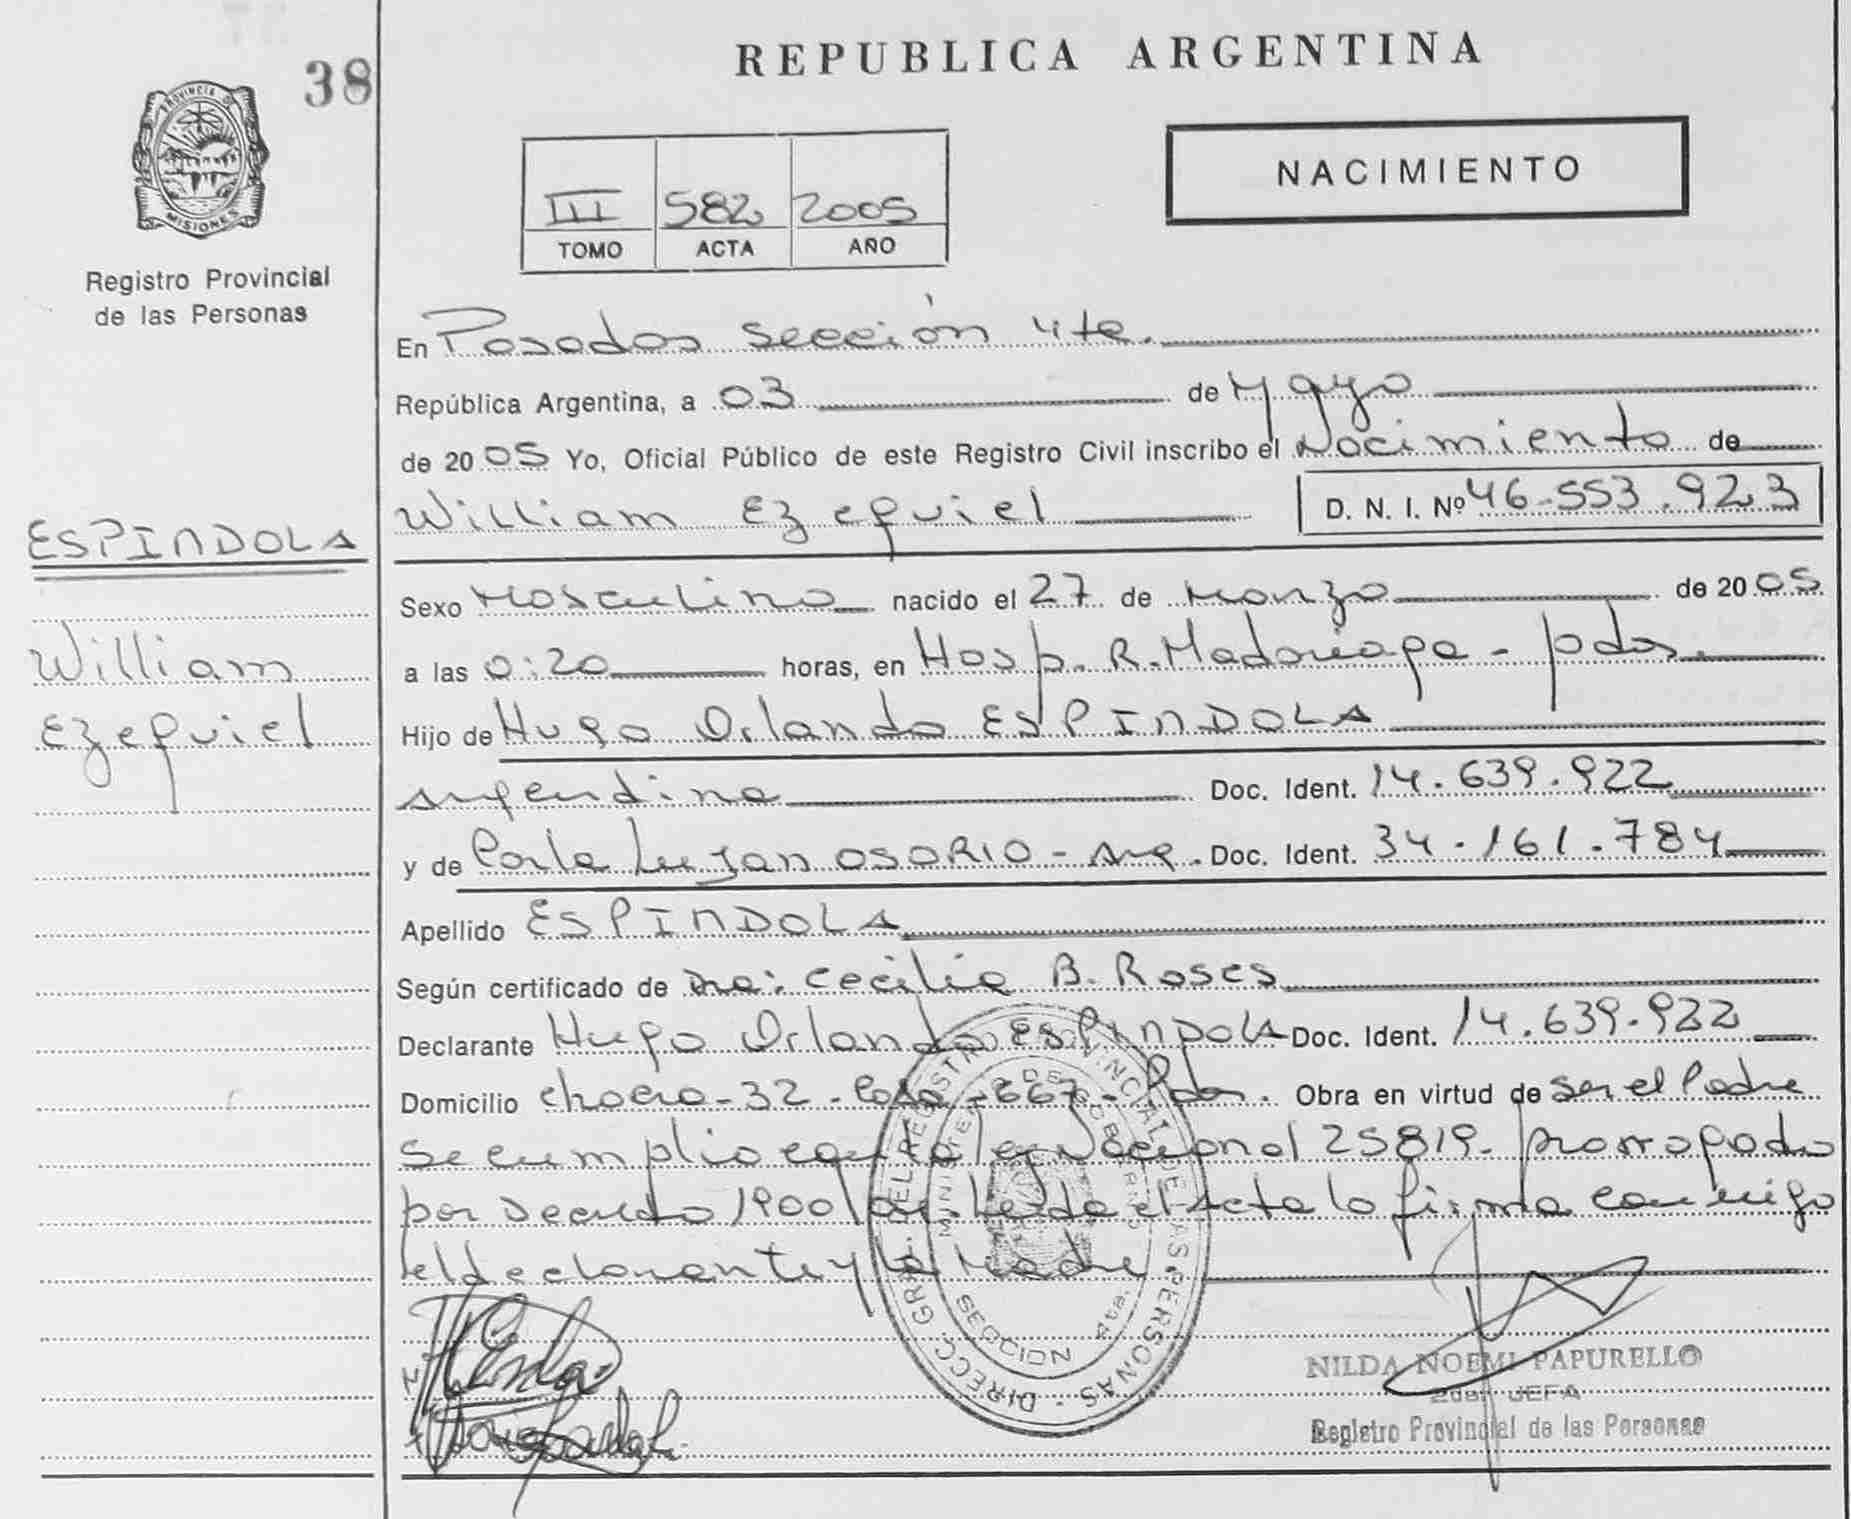 38
REPUBLICA ARGENTINA
PROVINCIA D
MISIONES
Registro Provincial
de las Personas
NACIMIENTO
III 582 2005
TOMO ACTA AÑO
En Posadas sección 4ta.
República Argentina, a 03 de Mayo
de 2005 Yo, Oficial Público de este Registro Civil inscribo el Nacimiento de
William Ezequiel D. N. I. Nº 46.553.923
ESPINDOLA
William
Ezequiel
Sexo Masculino nacido el 27 de Marzo de 2005
a las 0:20 horas, en Hosp. R. Madariaga - pdas.
Hijo de Hugo Orlando ESPINDOLA
argentina Doc. Ident. 14.639.922
y de Carla Lujan OSORIO - arg. Doc. Ident. 34.161.784
Apellido ESPINDOLA
Según certificado de Dra: Cecilia B. Roses
Declarante Hugo Orlando ESPINDOLA Doc. Ident. 14.639.922
Domicilio chacra - 32 - Casa - 667 - Pdas. Obra en virtud de ser el Padre
se cumplio con la ley Nacional 25819. prorrogado
por Decreto 1900 Leida el Acta lo firma conmigo
el declarante y la Madre
DIRECC. GRAL. DEL REGISTRO PROVINCIAL DE LAS PERSONAS
MINISTERIO DE GOBIERNO
SECCION 4ta.
NILDA NOEMI PAPURELLO
2da. JEFA
Registro Provincial de las Personas